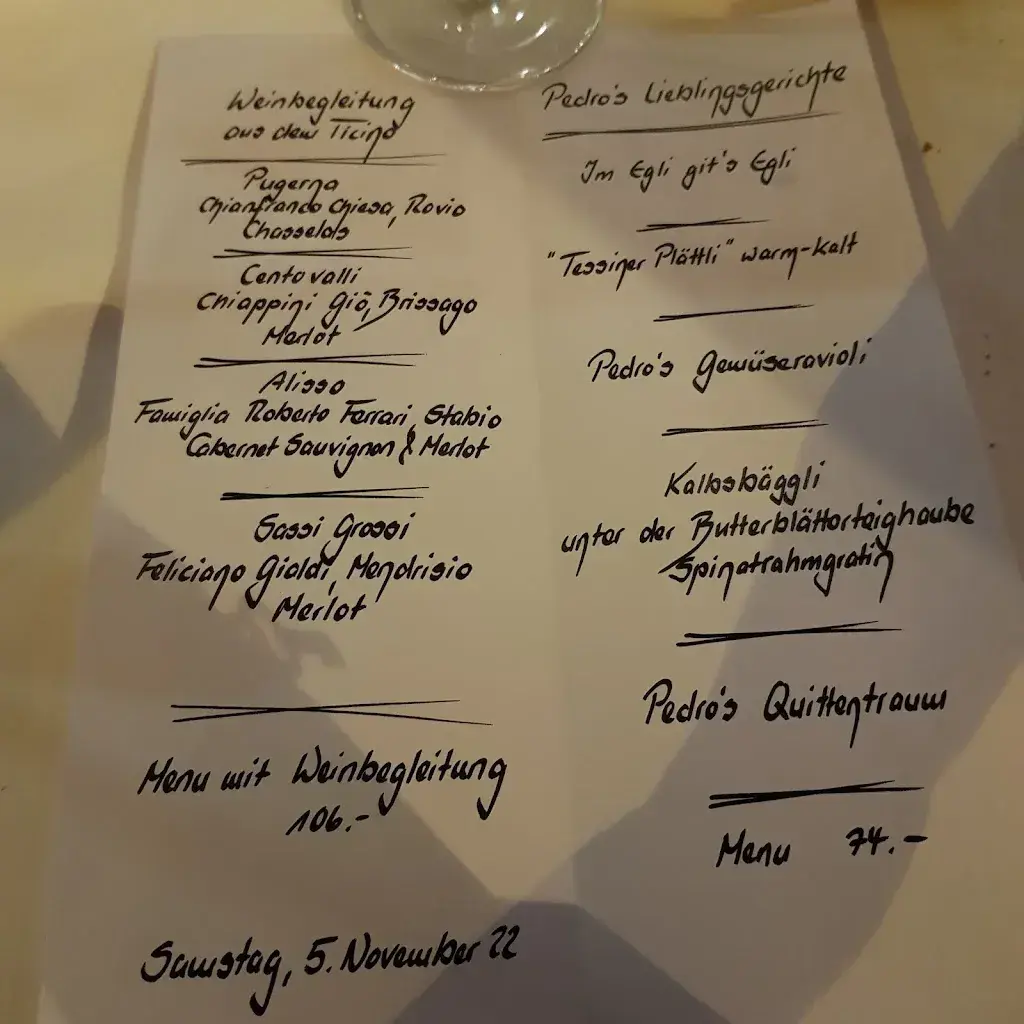 Weinbegleitung
aus dem Ticino
Pugerna
Chianfranco Chiesa, Rovio
Chasselas
Centovalli
Chiappini Giò, Brissago
Merlot
Alisso
Famiglia Roberto Ferrari, Stabio
Cabernet Sauvignon & Merlot
Sassi Grossi
Feliciano Gialdi, Mendrisio
Merlot
Menu mit Weinbegleitung
106.-
Samstag, 5. November 22
Pedro's Lieblingsgerichte
Im Egli git's Egli
"Tessiner Plättli" warm-kalt
Pedro's Gemüseravioli
Kalbsbäggli
unter der Butterblätterteighaube
Spinatrahmgratin
Pedro's Quittentraum
Menu 74.-